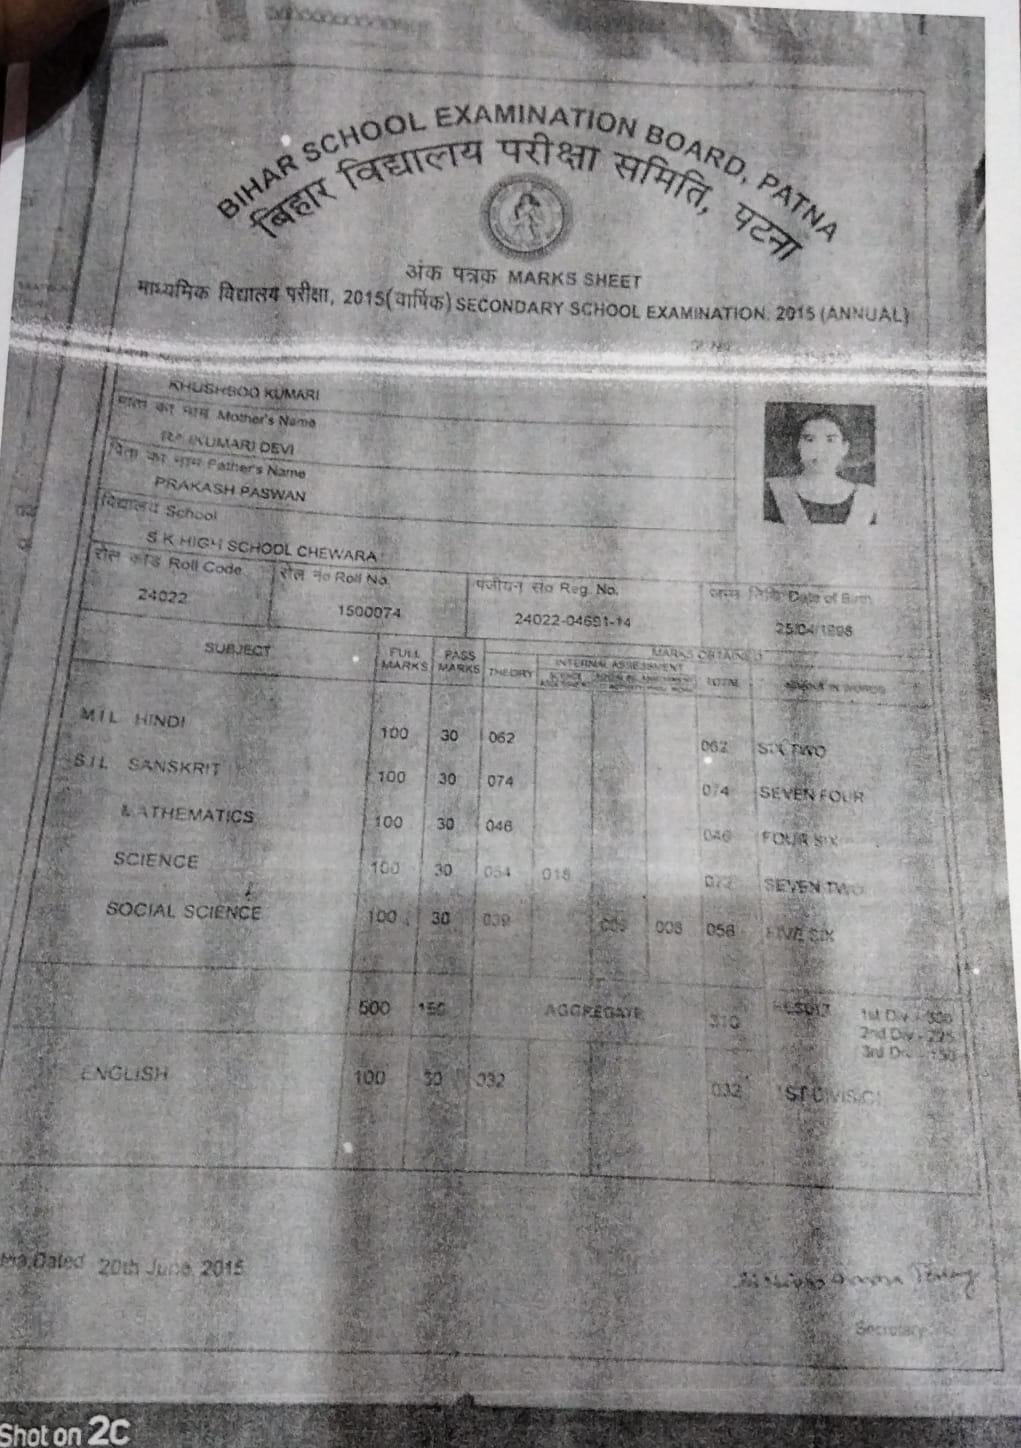 BIHAR SCHOOL EXAMINATION BOARD, PATNA
बिहार विद्यालय परीक्षा समिति, पटना
अंक पत्रक MARKS SHEET
माध्यमिक विद्यालय परीक्षा, 2015(वार्षिक) SECONDARY SCHOOL EXAMINATION, 2015 (ANNUAL)
KHUSHBOO KUMARI
माता का नाम Mother's Name
RAJKUMARI DEVI
पिता का नाम Father's Name
PRAKASH PASWAN
विद्यालय School
S K HIGH SCHOOL CHEWARA
रोल कोड Roll Code रोल नं० Roll No. पंजीयन सं० Reg. No. जन्म तिथि Date of Birth
24022 1500074 24022-04691-14 25/04/1998
SUBJECT FULL MARKS PASS MARKS MARKS OBTAINED
THEORY INTERNAL ASSESSMENT TOTAL
M I L HINDI 100 30 062 062 SIX TWO
S.I L SANSKRIT 100 30 074 074 SEVEN FOUR
MATHEMATICS 100 30 046 046 FOUR SIX
SCIENCE 100 30 054 018 072 SEVEN TWO
SOCIAL SCIENCE 100 30 039 009 008 056 FIVE SIX
500 150 AGGREGATE 310 RESULT 1st Div - 300
2nd Div - 225
3rd Div - 150
ENGLISH 100 30 032 032 1ST DIVISION
Dated 20th June, 2015
Secretary
Shot on 2C